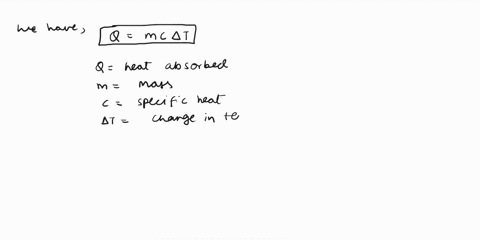 We have, Q = mcΔT
Q = heat absorbed
m = mass
c = specific heat
ΔT = change in te